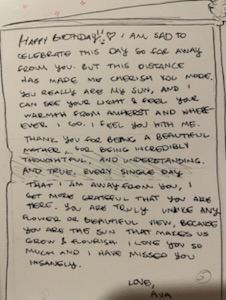 HAPPY BIRTHDAY!! ♡ I AM SAD TO
CELEBRATE THIS DAY SO FAR AWAY
FROM YOU. BUT THIS DISTANCE
HAS MADE ME CHERISH YOU MORE.
YOU REALLY ARE MY SUN, AND I
CAN SEE YOUR LIGHT & FEEL YOUR
WARMTH FROM AMHERST AND WHERE-
EVER I GO. I FEEL YOU WITH ME.
THANK YOU FOR BEING A BEAUTIFUL
MOTHER, FOR BEING INCREDIBLY
THOUGHTFUL, AND UNDERSTANDING.
AND TRUE. EVERY SINGLE DAY
THAT I AM AWAY FROM YOU, I
GET MORE GRATEFUL THAT YOU ARE
THERE. YOU ARE TRULY UNLIKE ANY
FLOWER OR BEAUTIFUL VIEW, BECAUSE
YOU ARE THE SUN THAT MAKES US
GROW & FLOURISH. I LOVE YOU SO
MUCH AND I HAVE MISSED YOU
INSANELY.
LOVE,
AVA